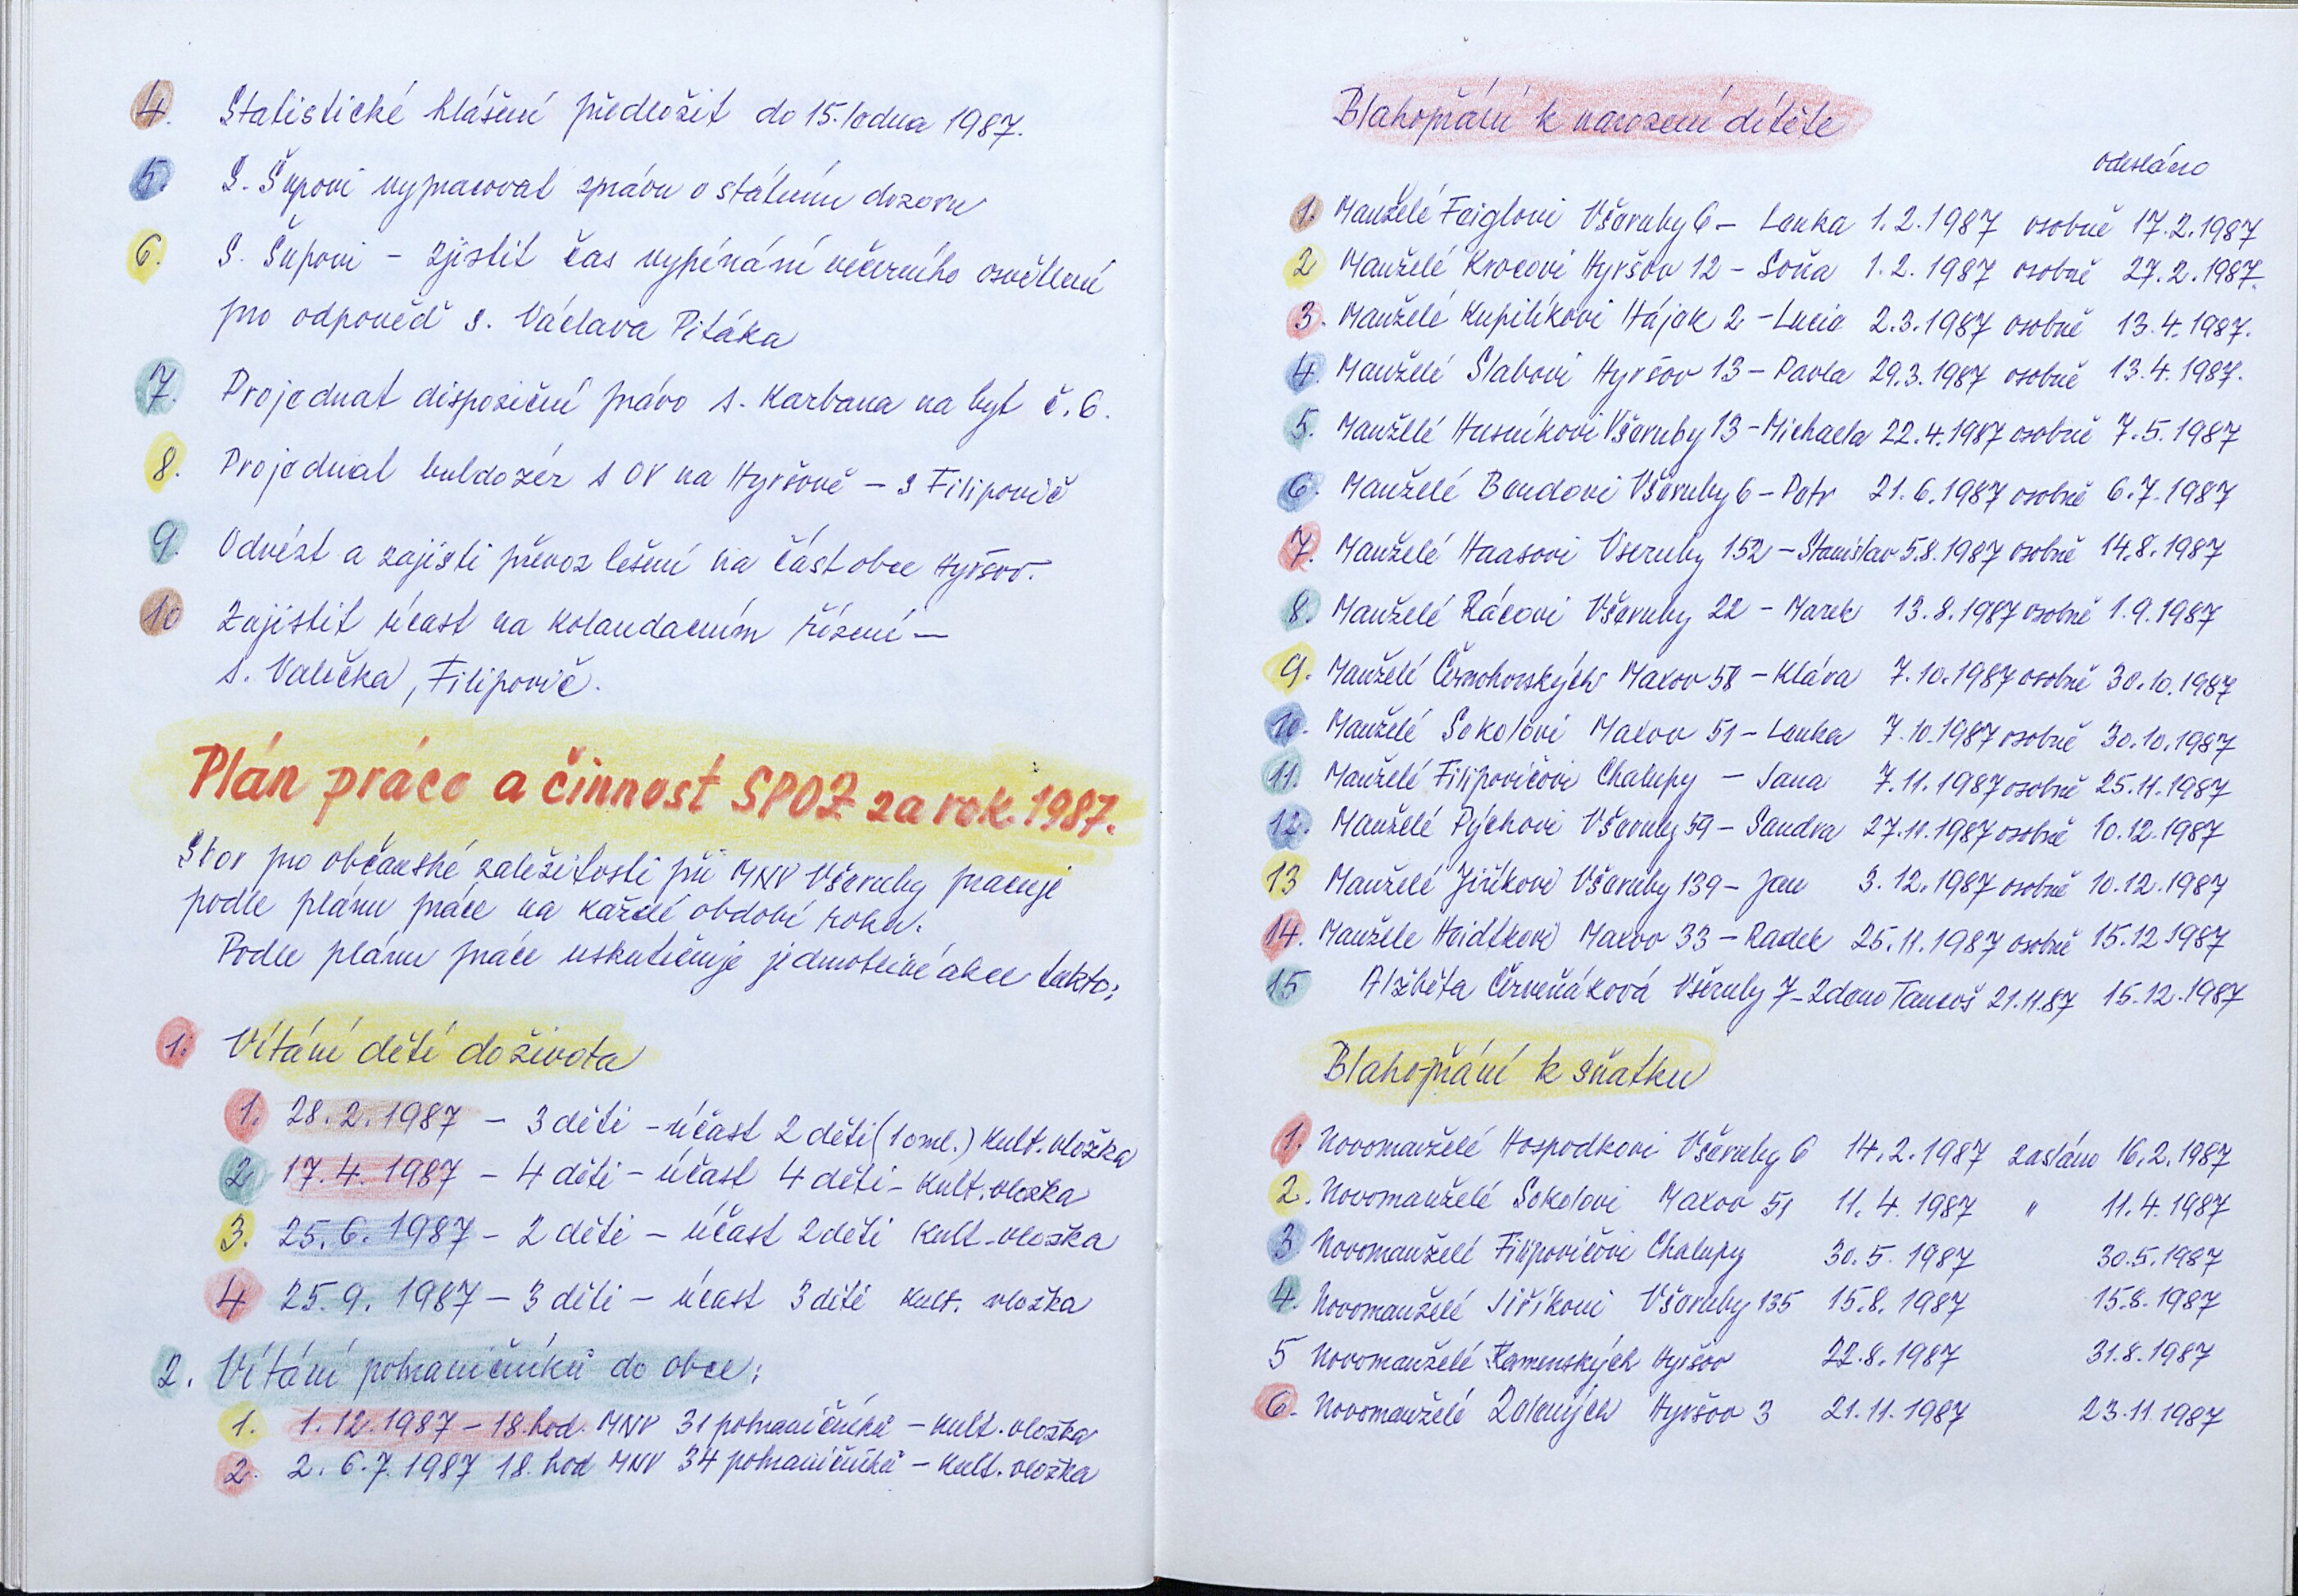 4. Statistické hlášení předložit do 15. ledna 1987.
5. S. Šupovi vypracovat zprávu o státním dozoru
6. S. Šupovi - zjistit čas vypínání večerního osvětlení
pro odpověď s. Václava Pitáka
7. Projednat dispoziční právo s. Karbana na byt č. 6.
8. Projednat buldozér s OV na Hyršově - s Filipovič
9. Odvézt a zajisti převoz lešení na část obce Hyršov.
10 Zajistit účast na kolaudacním řízení -
s. Valečka, Filipovič.
Plán práce a činnost SPOZ za rok 1987.
Sbor pro občanské záležitosti při MNV Všeruby pracuje
podle plánu práce na každé období roku.
Podle plánu práce uskutečňuje jednotlivé akce takto:
1. Vítání dětí do života
1. 28. 2. 1987 - 3 děti - účast 2 děti (1 oml.) Kult. vložka
2 17. 4. 1987 - 4 děti - účast 4 děti - kult. vložka
3. 25. 6. 1987 - 2 děti - účast 2 děti kult. vložka
4 25. 9. 1987 - 3 děti - účast 3 děti kult. vložka
2. Vítání pohraničníků do obce:
1. 1. 12. 1987 - 18. hod. MNV 31 pohraničníků - kult. vložka
2. 2. 6. 7. 1987 18. hod MNV 34 pohraničníků - kult. vložka
Blahopřání k narození dítěte
odesláno
1. Manželé Faiglovi Všeruby 6 - Lenka 1. 2. 1987 osobně 17. 2. 1987
2 Manželé Krocovi Hyršov 12 - Soňa 1. 2. 1987 osobně 27. 2. 1987.
3. Manželé Kupilíkovi Hájek 2 - Lucie 2. 3. 1987 osobně 13. 4. 1987.
4. Manželé Slabovi Hyršov 13 - Pavla 29. 3. 1987 osobně 13. 4. 1987.
5. Manželé Husníkovi Všeruby 13 - Michaela 22. 4. 1987 osobně 7. 5. 1987
6. Manželé Bendovi Všeruby 6 - Petr 21. 6. 1987 osobně 6. 7. 1987
7. Manželé Haasovi Vseruby 152 - Stanislav 5. 8. 1987 osobně 14. 8. 1987
8. Manželé Rácovi Všeruby 22 - Marek 13. 8. 1987 osobně 1. 9. 1987
9. Manželé Černohorských Maxov 58 - Klára 7. 10. 1987 osobně 30. 10. 1987
10. Manželé Sokolovi Maxov 51 - Lenka 7. 10. 1987 osobně 30. 10. 1987
11. Manželé Filipovičovi Chalupy - Jana 7. 11. 1987 osobně 25. 11. 1987
12. Manželé Pýchovi Všeruby 59 - Sandra 27. 11. 1987 osobně 10. 12. 1987
13 Manželé Jiříkovi Všeruby 139 - Jan 3. 12. 1987 osobně 10. 12. 1987
14. Manželé Heidlkovi Maxov 33 - Radek 25. 11. 1987 osobně 15. 12 1987
15 Alžběta Červeňáková Všeruby 7 - Zdeno Tancoš 21. 11. 87 15. 12. 1987
Blahopřání k sňatku
1. Novomanželé Hospodkovi Všeruby 6 14. 2. 1987 zasláno 16. 2. 1987
2. Novomanželé Sokolovi Maxov 51 11. 4. 1987 " 11. 4. 1987
3 Novomanželé Filipovičovi Chalupy 30. 5. 1987 30. 5. 1987
4. Novomanželé Jiříkovi Všeruby 135 15. 8. 1987 15. 8. 1987
5 Novomanželé Kamenských Hyršov 22. 8. 1987 31. 8. 1987
6. Novomanželé Zelených Hyršov 3 21. 11. 1987 23. 11 1987